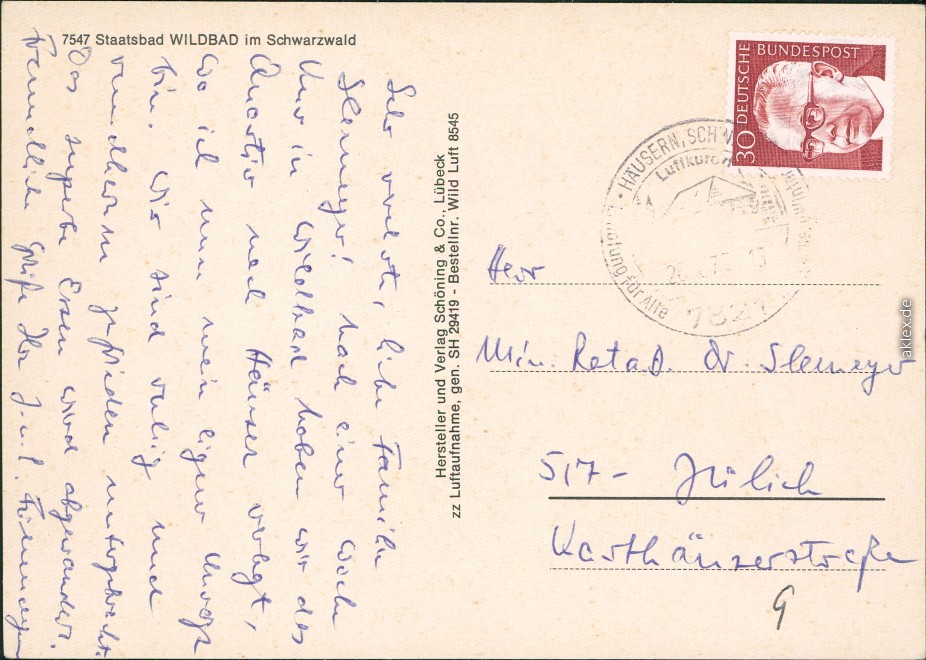 7547 Staatsbad WILDBAD im Schwarzwald
Sehr verehrte, liebe Familie
Slemeyer! Nach einer Woche
Kur in Wildbad haben wir das
Quartier nach Häuser verlegt,
wo ich nun mein eigner
bin. Wir sind ruhig und
zufrieden untergebracht.
Das superbe Essen wird abgewandert.
Freundliche Grüße Ihr J. u. L.
Hersteller und Verlag Schöning & Co., Lübeck
zz Luftaufnahme, gen. SH 29419 - Bestellnr. Wild Luft 8545
30 DEUTSCHE BUNDESPOST
HÄUSERN, SCHW
Luftkurort
für Alle
7821
Herr
Min. Rat a.D. Dr. Slemeyer
517- Jülich
Karthäuserstraße
9
aklex.de